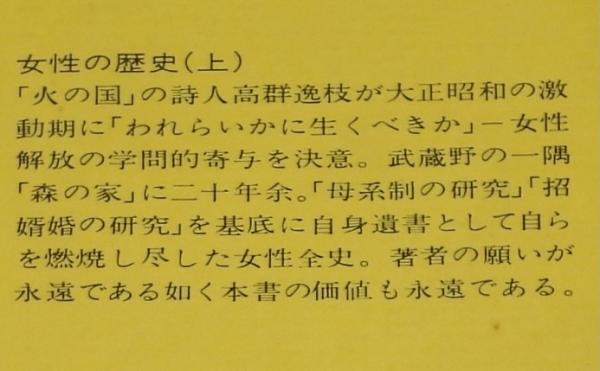 女性の歴史(上)
「火の国」の詩人高群逸枝が大正昭和の激
動期に「われらいかに生くべきか」－女性
解放の学問的寄与を決意。武蔵野の一隅
「森の家」に二十年余。「母系制の研究」「招
婿婚の研究」を基底に自身遺書として自ら
を燃焼し尽した女性全史。著者の願いが
永遠である如く本書の価値も永遠である。